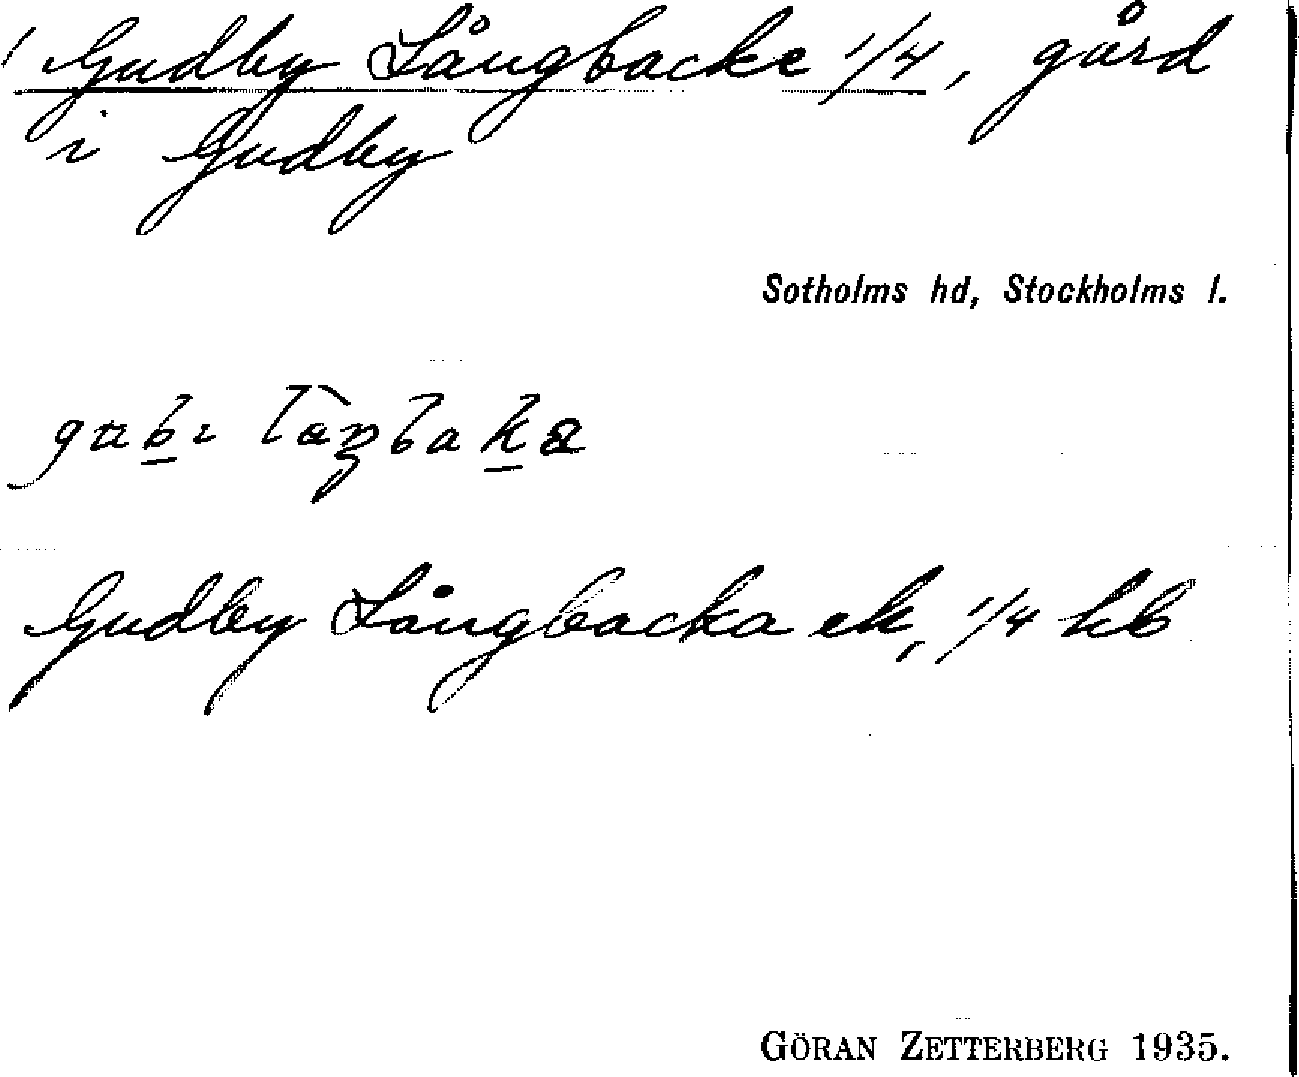 Gudby Långbacke 1/4, gård
i Gudby
Sotholms hd, Stockholms l.
Gudby Långbacka ek, 1/4 kb
GÖRAN ZETTERBERG 1935.